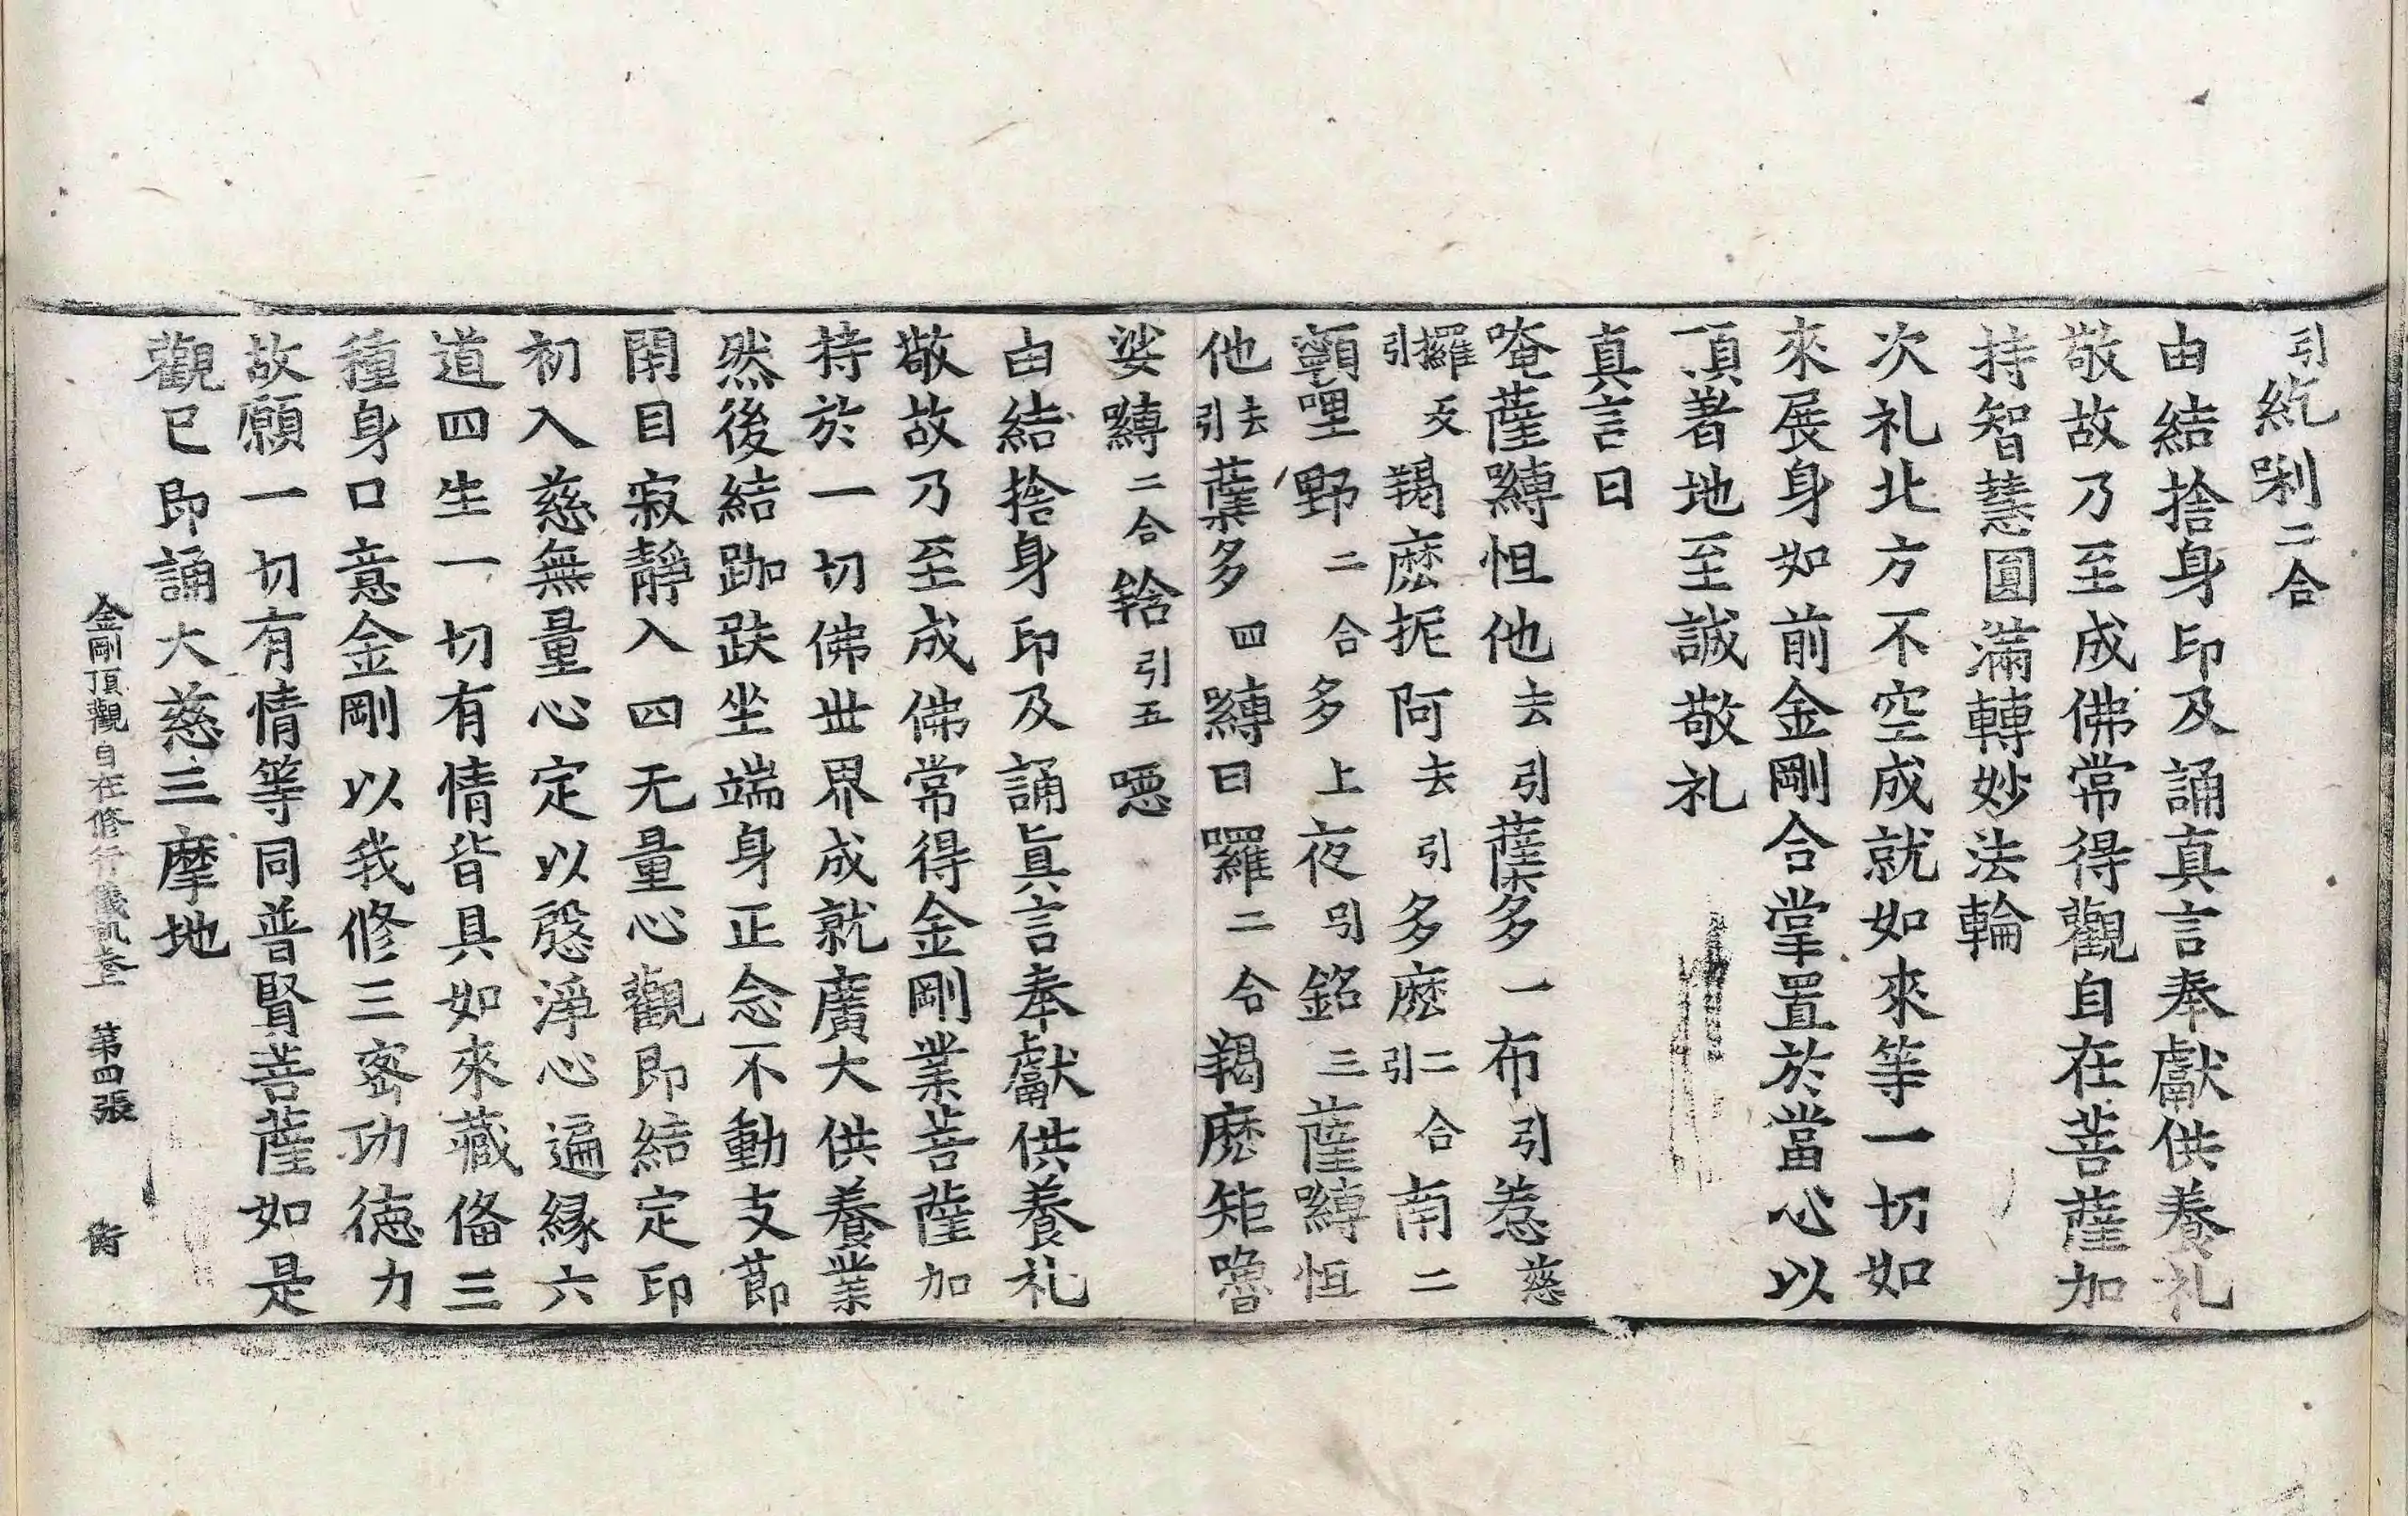 引紇唎二合
由結捨身印及誦真言奉獻供養礼
敬故乃至成佛常得觀自在菩薩加
持智慧圓滿轉妙法輪
次礼北方不空成就如來等一切如
來展身如前金剛合掌置於當心以
頂著地至誠敬礼
真言曰
唵薩嚩怛他去引蘖多一布引惹慈
攞反引羯麽抳阿去引多麽二合引南二
顐哩野二合多上夜引銘三薩嚩怛
他去引蘖多四嚩日囉二合羯麽矩嚕
娑嚩二合䤈引五噁
由結捨身印及誦真言奉獻供養礼
敬故乃至成佛常得金剛業菩薩加
持於一切佛世界成就廣大供養業
然後結跏趺坐端身正念不動支節
閇目寂靜入四无量心觀即結定印
初入慈無量心定以慇淨心遍縁六
道四生一切有情皆具如來藏俻三
種身口意金剛以我修三密功徳力
故願一切有情等同普賢菩薩如是
觀已即誦大慈三摩地
金剛頂觀自在修行儀軌卷上 第四張